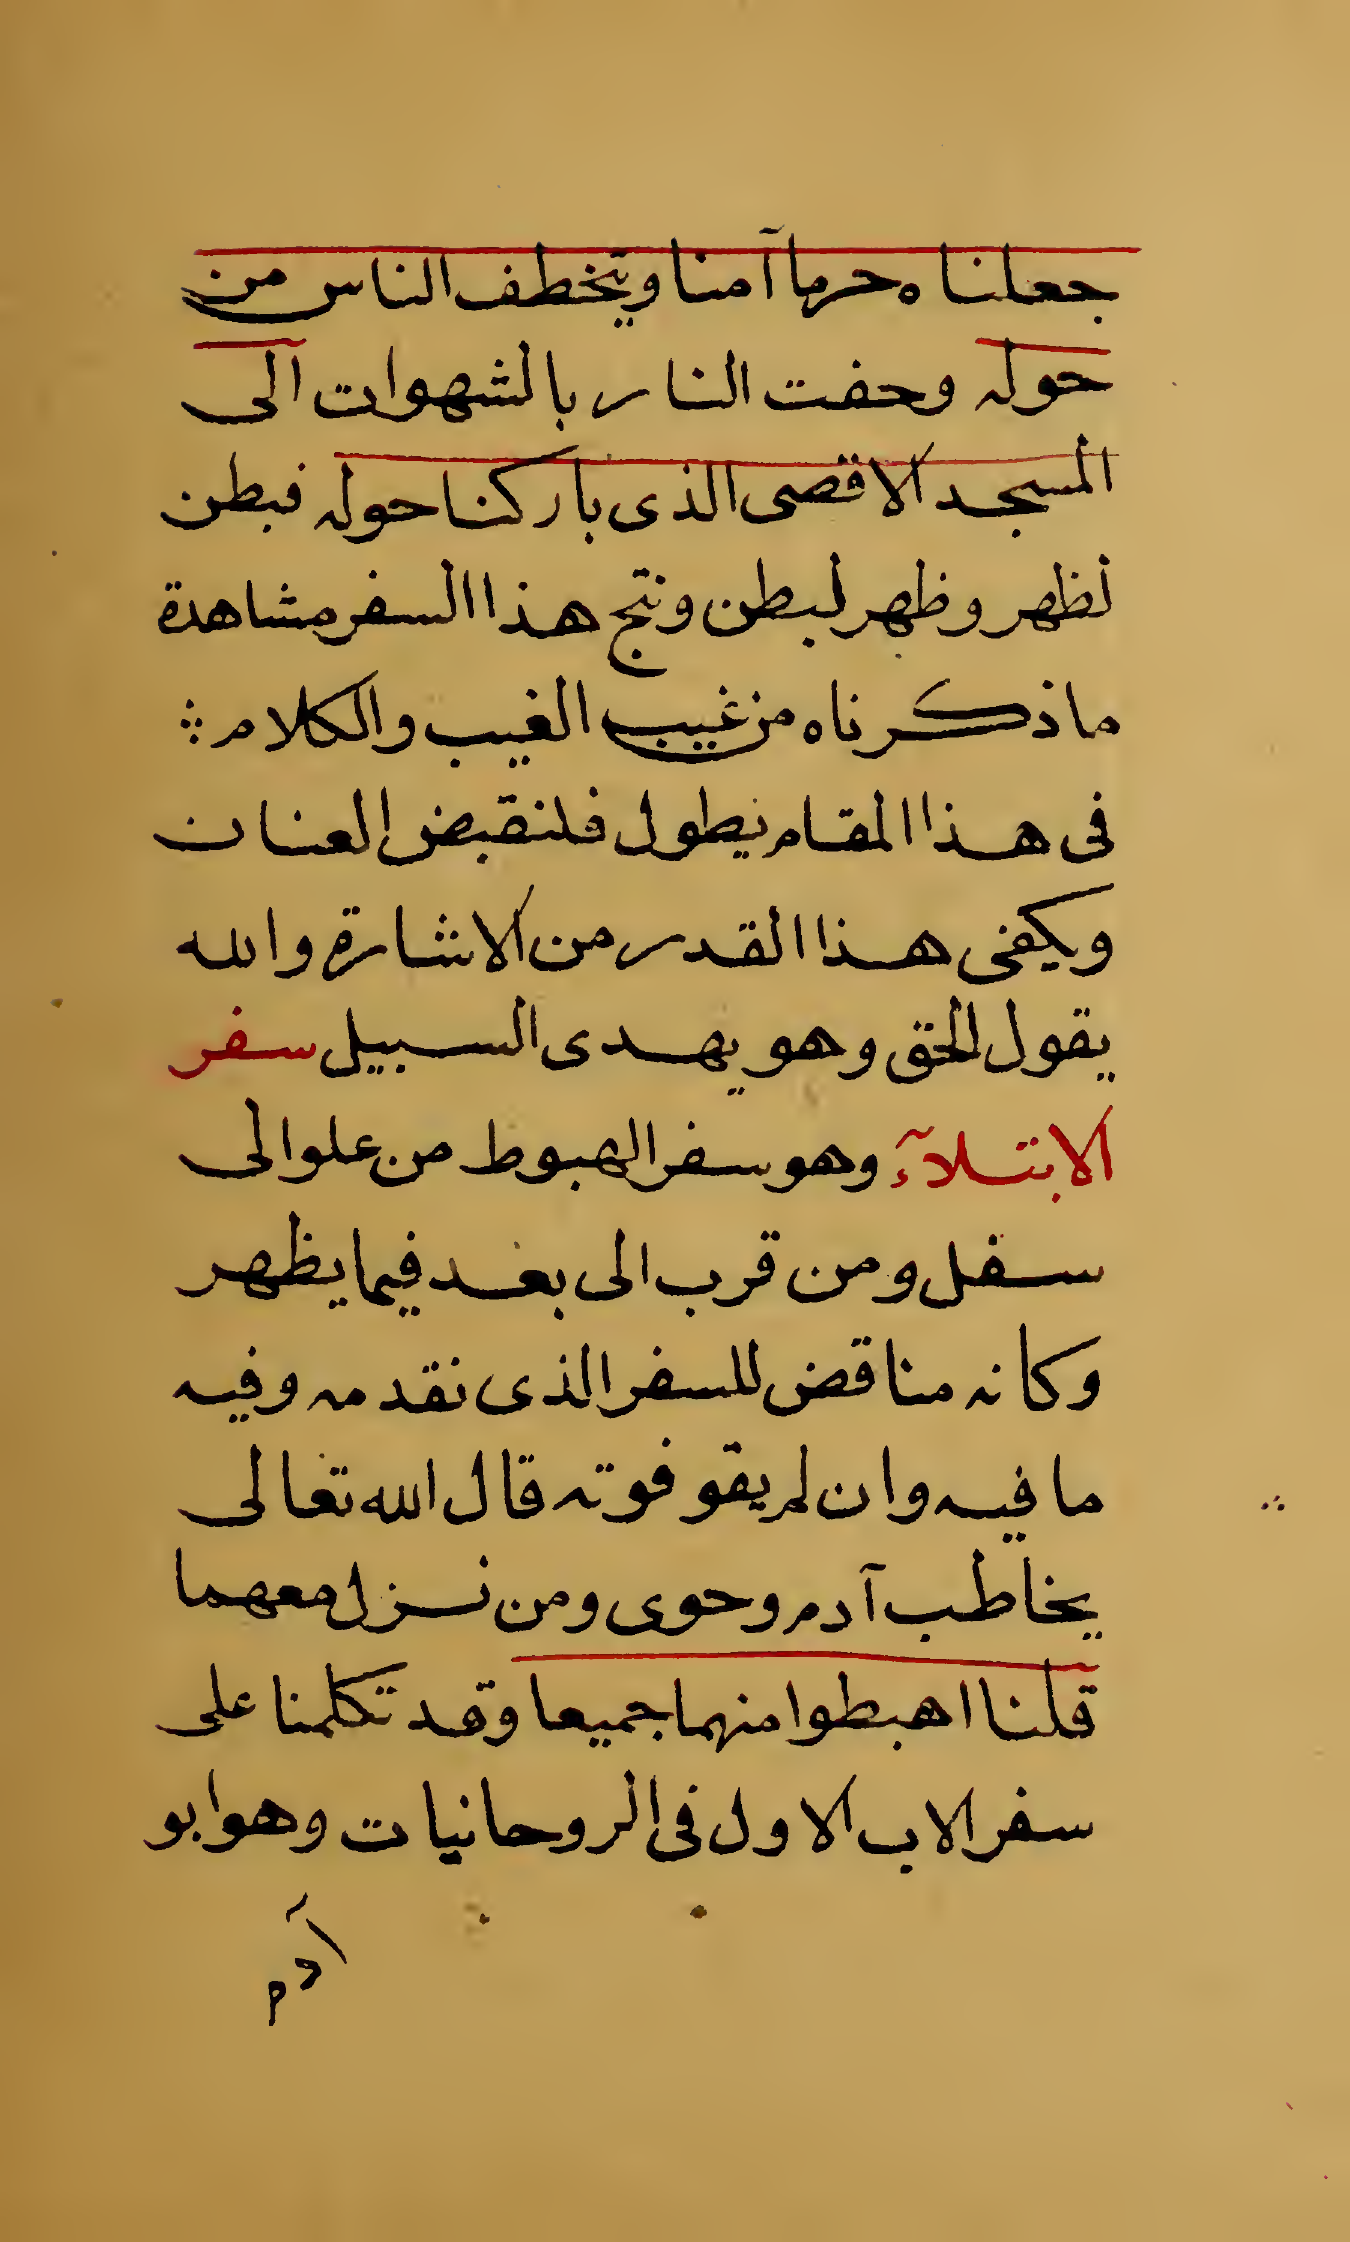 جعلناه حرما آمنا ويتخطف الناس من
حوله وحفت النار بالشهوات الى
المسجد الاقصى الذى باركنا حوله فبطن
لظهر وظهر لبطن ونتج هذا السفر مشاهدة
ما ذكرناه من غيب الغيب والكلام
فى هذا المقام يطول فلنقبض العنان
ويكفى هذا القدر من الاشارة والله
يقول الحق وهو يهدى السبيل سفر
الابتلآء وهو سفر الهبوط من علو الى
سفل ومن قرب الى بعد فيما يظهر
وكانه مناقض للسفر الذى تقدمه وفيه
ما فيه وان لم يقو قوته قال الله تعالى
يخاطب آدم وحوى ومن نزل معهما
قلنا اهبطوا منهما جميعا وقد تكلمنا على
سفر الاب الاول فى الروحانيات وهو ابو
آدم